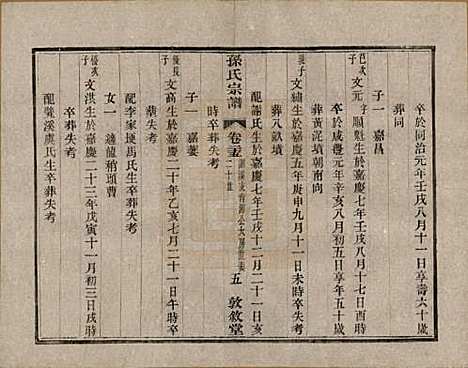 卒於同治元年壬戌八月十一日亨壽六十歲
葬同
子一 嘉昌
文元 字順魁生於嘉慶七年壬戌八月十七日酉時
卒於咸豐元年辛亥八月初五日享年五十歲
葬黃泥墳朝南向
文繡生於嘉慶五年庚申九月十一日未時卒失考
葬八畝墳
配謝氏生於嘉慶七年壬戌十二月二十一日亥
時卒葬失考
孫氏宗譜
卷三十五
二十世
五
敦敘堂
子一 嘉蔞
文高生於嘉慶二十年乙亥七月二十一日午時卒
葬失考
配李家堰馬氏生卒葬失考
女一 適龍稍頭曹
文洪生於嘉慶二十三年戊寅十一月初三日戌時
卒葬失考
配龔溪虞氏生卒葬失考